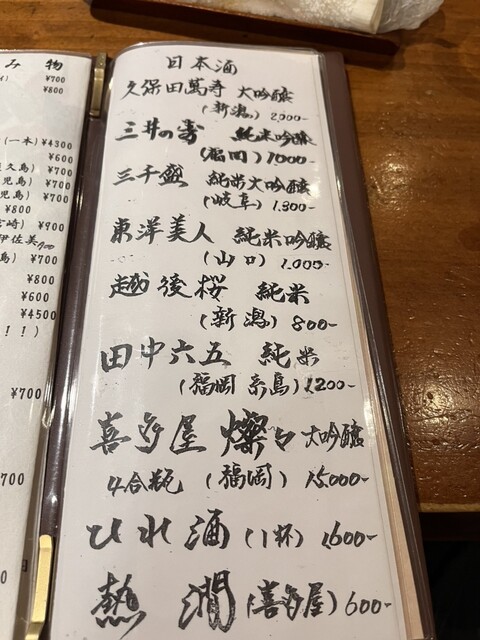 み物
¥700
¥800
(一本)¥4300
¥600
久島) ¥700
児島) ¥700
児島) ¥700
¥800
宮崎) ¥900
伊佐美 900
島) ¥700
¥800
¥600
¥4500
!!)
¥700
700
日本酒
久保田萬寿 大吟醸
(新潟) 2,000-
三井の寿 純米吟醸
(福岡) 1,000-
三千盛 純米大吟醸
(岐阜) 1,300-
東洋美人 純米吟醸
(山口) 1,000-
越後桜 純米
(新潟) 800-
田中六五 純米
(福岡 糸島) 1,200-
喜多屋 燦々 大吟醸
4合瓶 (福岡) 15,000-
ひれ酒 (1杯) 1,600-
熱燗 (喜多屋) 600-